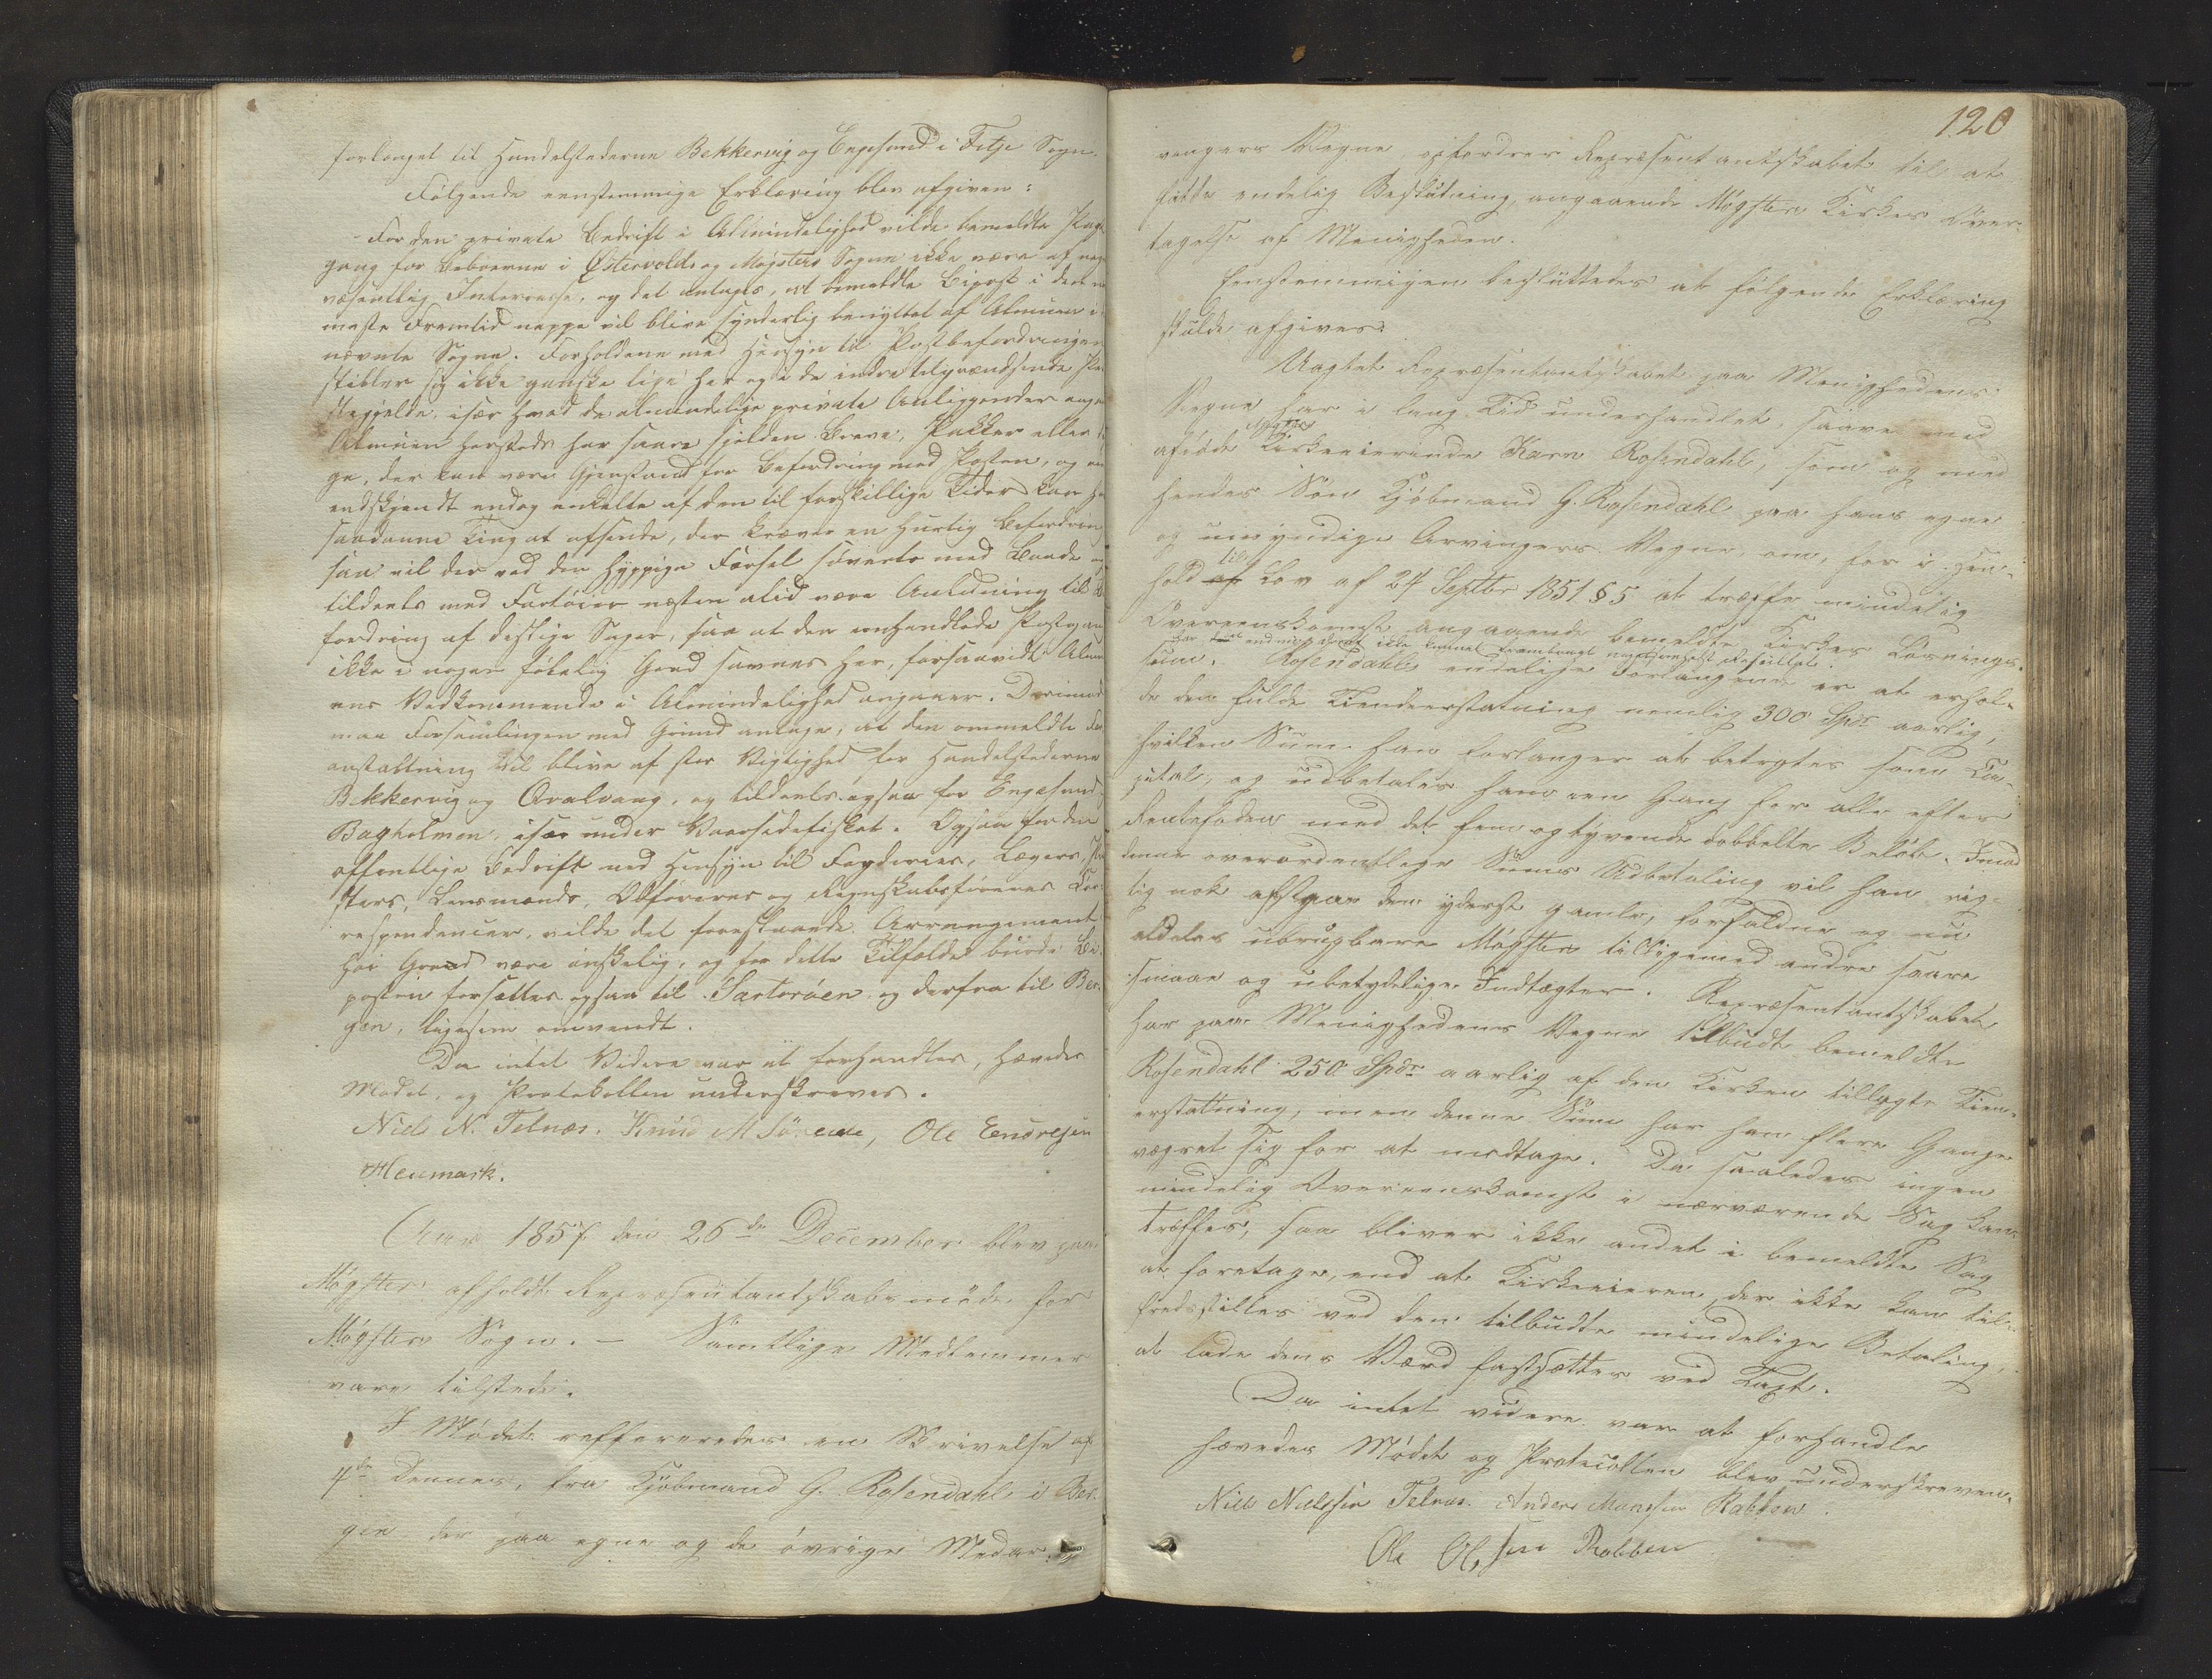 forlanget til Handelstederne Bekkervig og Engesund i Fitje Sogn.
Følgende eenstemmige Erklæring blev afgiven:
For den private Bedrift i Almindelighed vilde bemeldte Post-
gang for Beboerne i Østervolds og Møgsters Sogne ikke være af
væsentlig Interesse, og det antages, at bemeldte Bipost i den
meste Fremtid neppe vil blive synderlig benyttet af Almuen i
nævnte Sogne. Forholdene med Hensyn til Postbefordringen
stiller sig ikke ganske lige her og i de indre tilgrændsende Præ-
stegjelde, især hvad de almindelige private Anliggender angaar
Almuen hersteds har saare sjelden Breve, Pakker eller
ge, der kan være Gjenstand for Befordring med Posten, og
endskjendt endog enkelte af den til forskjellige Tider kan
saadanne Ting at afsende, der kræver en hurtig Befordring
saa vil der ved den hyppige Færsel søværts med Baade
tildeels med Fartøier næsten altid være Anledning til
fordring af deslige Sager, saa at den omhandlede Postgang
ikke i nogen følelig Grad savnes her, forsaavidt Almu
ens Vedkommende i Almindelighed angaaer. Derimod
maa Forsamlingen med Grund antage, at den ommeldte
anstaltning vil blive af stor Vigtighed for Handelstederne
Bekkervig og Qvalvaag, og tildeels ogsaa for Engesund
Bagholmen, især under Vaarsildefisket. Ogsaa for den
offentlige Bedrift med Hensyn til Fogderiers, Lægers,
sters, Lensmænds, Opsynets og Regnskabsførernes Cor-
respondencer, vilde det forestaaende Arrangement
høi Grad være ønskelig, og for dette Tilfælde burde Bi-
posten forsættes ogsaa til Sartorøen og derfra til Ber-
gen, ligesom omvendt.
Da intet Videre var at forhandles, hævedes
Mødet, og Protokollen underskreves.
Niels N. Telnæs. Knud M Sörevie, Ole Endresen
Heumark.
Aar 1857 den 26de December blev paa
Møgster afholdt Repræsentantskabsmøde for
Møgsters Sogn. – Samtlige Medlemmer
vare tilstede.
I Mødet refereredes en Skrivelse af
4de Dennes, fra Kjøbmand G. Rosendahl i Ber-
gen, der paa egne og de øvrige Medar-
120
vingers Vegne, opfordrer Repræsentantskabet til at
fatte endelig Beslutning, angaaende Møgster Kirkes Over-
tagelse af Menigheden.
Eenstemmigen besluttedes at følgende Erklæring
skulde afgives:
Uagtet Repræsentantskabet paa Menighedens
Vegne har i lang Tid underhandlet, saavel med
afdøde Kirkeeierinde Karn Rosendahl, som og med
hendes Søn Kjøbmand G. Rosendahl paa hans egne
og umyndige Arvingers Vegne, om, her i Hen-
til
hold af Lov af 24 Septbr 1851 § 5 at træffe mindelig
Overeenskomst angaaende bemeldte Kirkes Løsnings-
har endnu ikke kunnet frembringes noget Resultat.
sum. Rosendahls endelige Forlangende er at erhol-
de den fulde Tiendeerstatning nemlig 300 Spdr aarlig,
hvilken Sum han forlanger at betragtes som Ca-
pital, og udbetales ham een Gang for alle efter
Rentefoden med det fem og tyvende dobbelte Beløb. Imod
denne overordentlige Sums Udbetaling vil han rig-
tig nok afstaae den yderst gamle, forfaldne og nu
aldeles ubrugbare Møgster tilligemed andre saare
smaae og ubetydelige Indtægter. Repræsentantskabet
har paa Menighedens Vegne tilbudt bemeldte
Rosendahl 250 Spdr aarlig af den Kirken tillagte Tien-
erstatning, men denne Sum har han flere Gange
vægret sig for at modtage. Da saaledes ingen
mindelig Overeenskomst i nærværende Sag kan
træffes, saa bliver ikke andet i bemeldte Sag
at foretage, end at Kirkeeieren, der ikke kan til-
fredsstilles ved den tilbudte mindelige Betaling,
at lade dens Værd fastsættes ved Taxt.
Da intet videre var at forhandle
hævedes Mødet og Protocollen blev underskreven.
Niels Nielsen Telnæs. Anders Monsen Rabben.
Ole Olssen Rabben